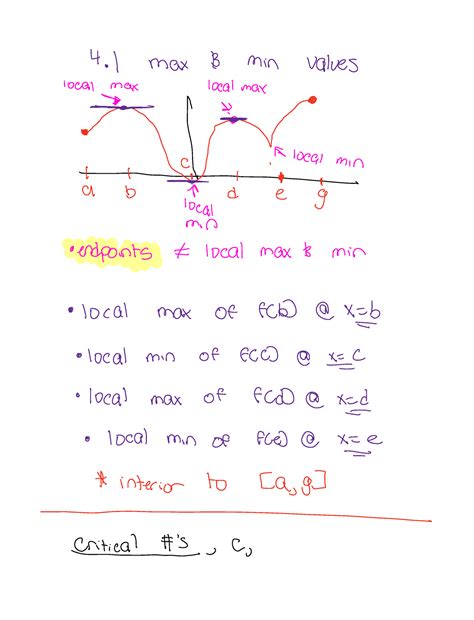 4.1 max & min values
local max
local max
local min
c
a b d e g
local
min
• endpoints ≠ local max & min
• local max of f(b) @ x=b
• local min of f(c) @ x=c
• local max of f(d) @ x=d
• local min of f(e) @ x=e
* interior to [a,g]
Critical #'s, c,